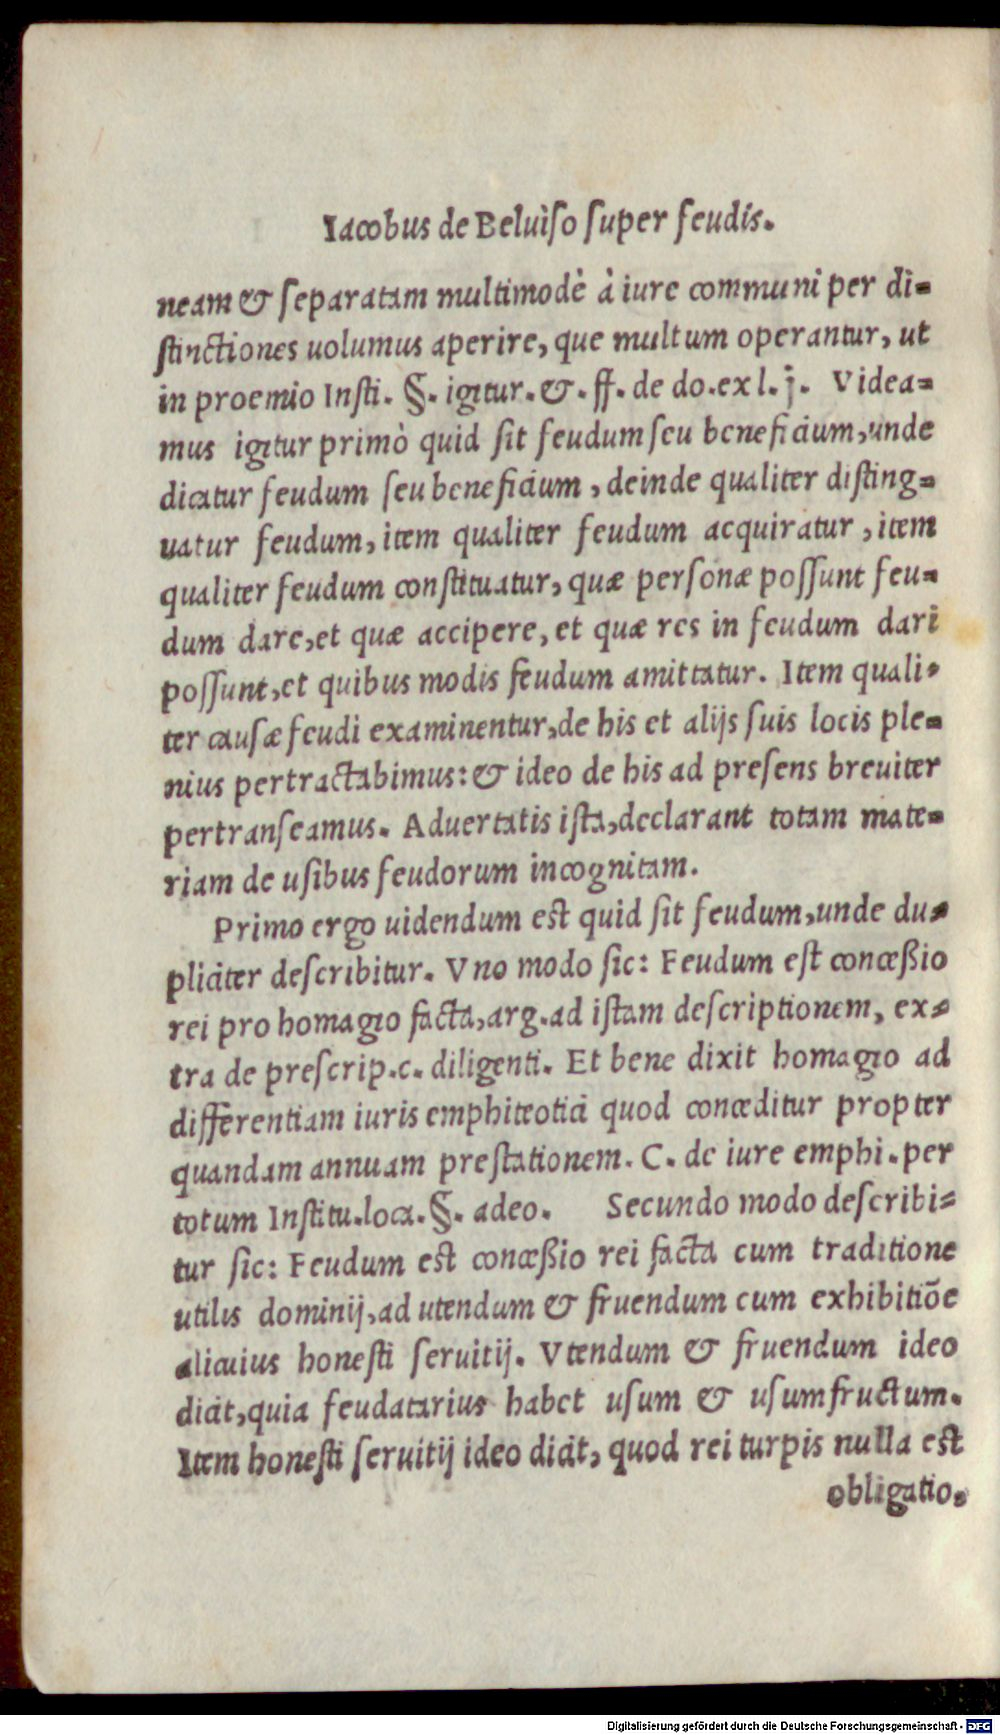 Iacobus de Beluiso super feudis.
neam & separatam multimodè à iure communi per di=
stinctiones uolumus aperire, que multum operantur, ut
in proemio Insti. §. igitur. &. ff. de do. ex l. j. Videa=
mus igitur primò quid sit feudum seu beneficium, unde
dicatur feudum seu beneficium, deinde qualiter disting=
uatur feudum, item qualiter feudum acquiratur, item
qualiter feudum constituatur, quæ personæ possunt feu=
dum dare, et quæ accipere, et quæ res in feudum dari
possunt, et quibus modis feudum amittatur. Item quali=
ter causæ feudi examinentur, de his et alijs suis locis ple=
nius pertractabimus: & ideo de his ad presens breuiter
pertranseamus. Aduertatis ista, declarant totam mate=
riam de usibus feudorum incognitam.
Primo ergo uidendum est quid sit feudum, unde du=
pliciter describitur. Vno modo sic: Feudum est concessio
rei pro homagio facta, arg. ad istam descriptionem, ex=
tra de prescrip. c. diligenti. Et bene dixit homagio ad
differentiam iuris emphiteotici quod conceditur propter
quandam annuam prestationem. C. de iure emphi. per
totum Institu. loca. §. adeo. Secundo modo describi=
tur sic: Feudum est concessio rei facta cum traditione
utilis dominij, ad utendum & fruendum cum exhibitiõe
alicuius honesti seruitij. Vtendum & fruendum ideo
dicit, quia feudatarius habet usum & usumfructum.
Item honesti seruitij ideo dicit, quod rei turpis nulla est
obligatio.
Digitalisierung gefördert durch die Deutsche Forschungsgemeinschaft - DFG